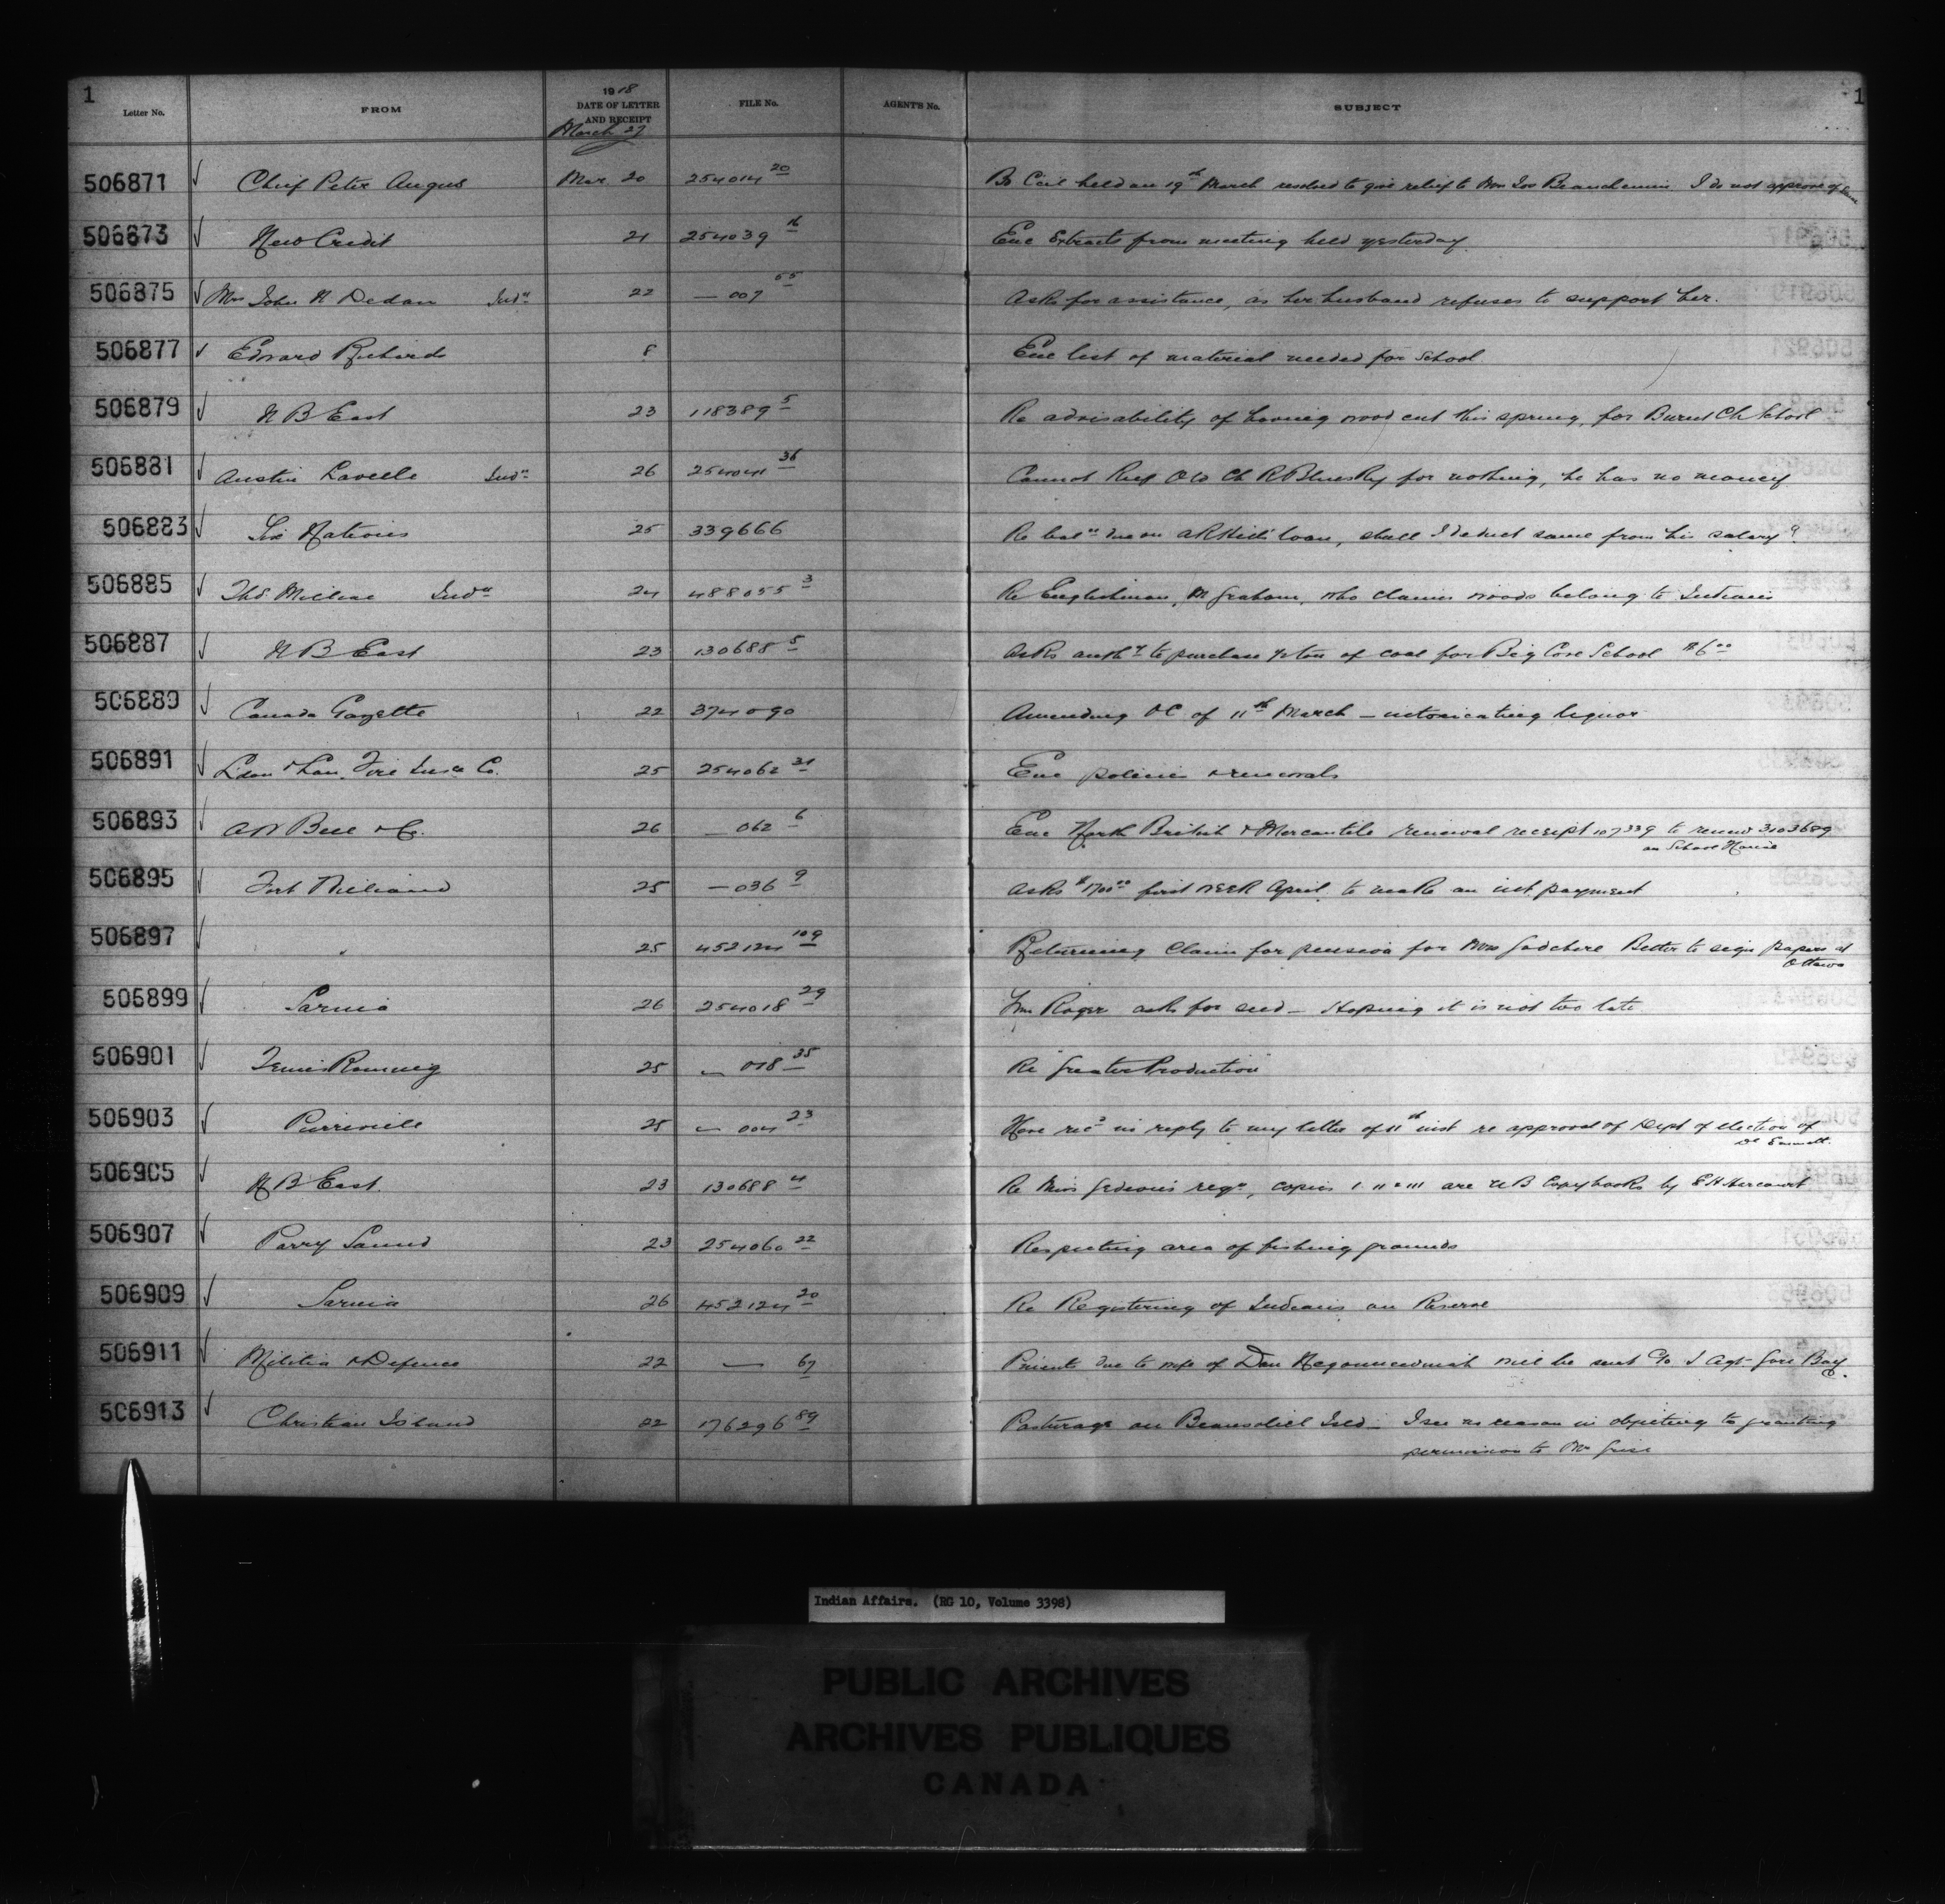 1
Letter No. FROM 1918 DATE OF LETTER AND RECEIPT FILE No. AGENT'S No. SUBJECT 1
March 27
506871 Chief Peter Angus Mar 20 254014 20 Bd Ccil held on 19th March resolved to give relief to Mrs Beauchemin I do not approve of same
506873 New Credit 21 254039 16 Enc Extracts from meeting held yesterday
506875 Mrs John N Dedam Indn 22 — 007 55 Asks for assistance, as her husband refuses to support her.
506877 Edward Richards 8 Enc list of material needed for School
506879 N B East 23 118389 5 Re advisability of having wood cut this spring, for Burnt Ch School
506881 Austin Indn 26 36 Cannot keep Old Ch for nothing, he has no money
506883 Six Nations 25 339666 Re baln due on loan, shall I deduct same from his salary?
506885 Thos Indn 24 488055 3 Re Englishman, Mr Graham, who claims woods belong to Indians
506887 N B East 23 130688 5 Asks authy to purchase ½ ton of coal for Big Cove School $6 00
506889 Canada Gazette 22 374090 Amending OC of 11th March — intoxicating liquor
506891 Fire Insce Co. 25 254062 31 Enc policies & renewals
506893 A W Bell & Co. 26 — 062 6 Enc North British & Mercantile renewal receipt 107339 to renew 3103689
on School House
506895 Fort William 25 — 036 9 Asks $1700 00 first week April, to make an int. payment
506897 " 25 452124 109 Returning Claim for pension for Mrs Better to sign papers at
Ottawa
506899 Sarnia 26 254018 29 Wm Roger asks for seed — Hoping it is not too late
506901 25 — 018 35 Re "Greater Production"
506903 Pierreville 25 — 004 23 Have recd in reply to my letter of 11th inst re approval of Dept of election of
506905 N B East 23 130688 4 Re Miss reqn, copies I II & III are N B Copybooks by E H Harcourt
506907 Parry Sound 23 254060 22 Respecting area of fishing grounds
506909 Sarnia 26 452124 20 Re Registering of Indians on Reserve
506911 Militia & Defence 22 — 67 due to wife of Dan will be sent c/o I Agt Gore Bay.
506913 Christian Island 22 176296 89 Pasturage on Beausoliel Isld — I see no reason in objecting to granting
permission to Mr
Indian Affairs. (RG 10, Volume 3398)
PUBLIC ARCHIVES
ARCHIVES PUBLIQUES
CANADA